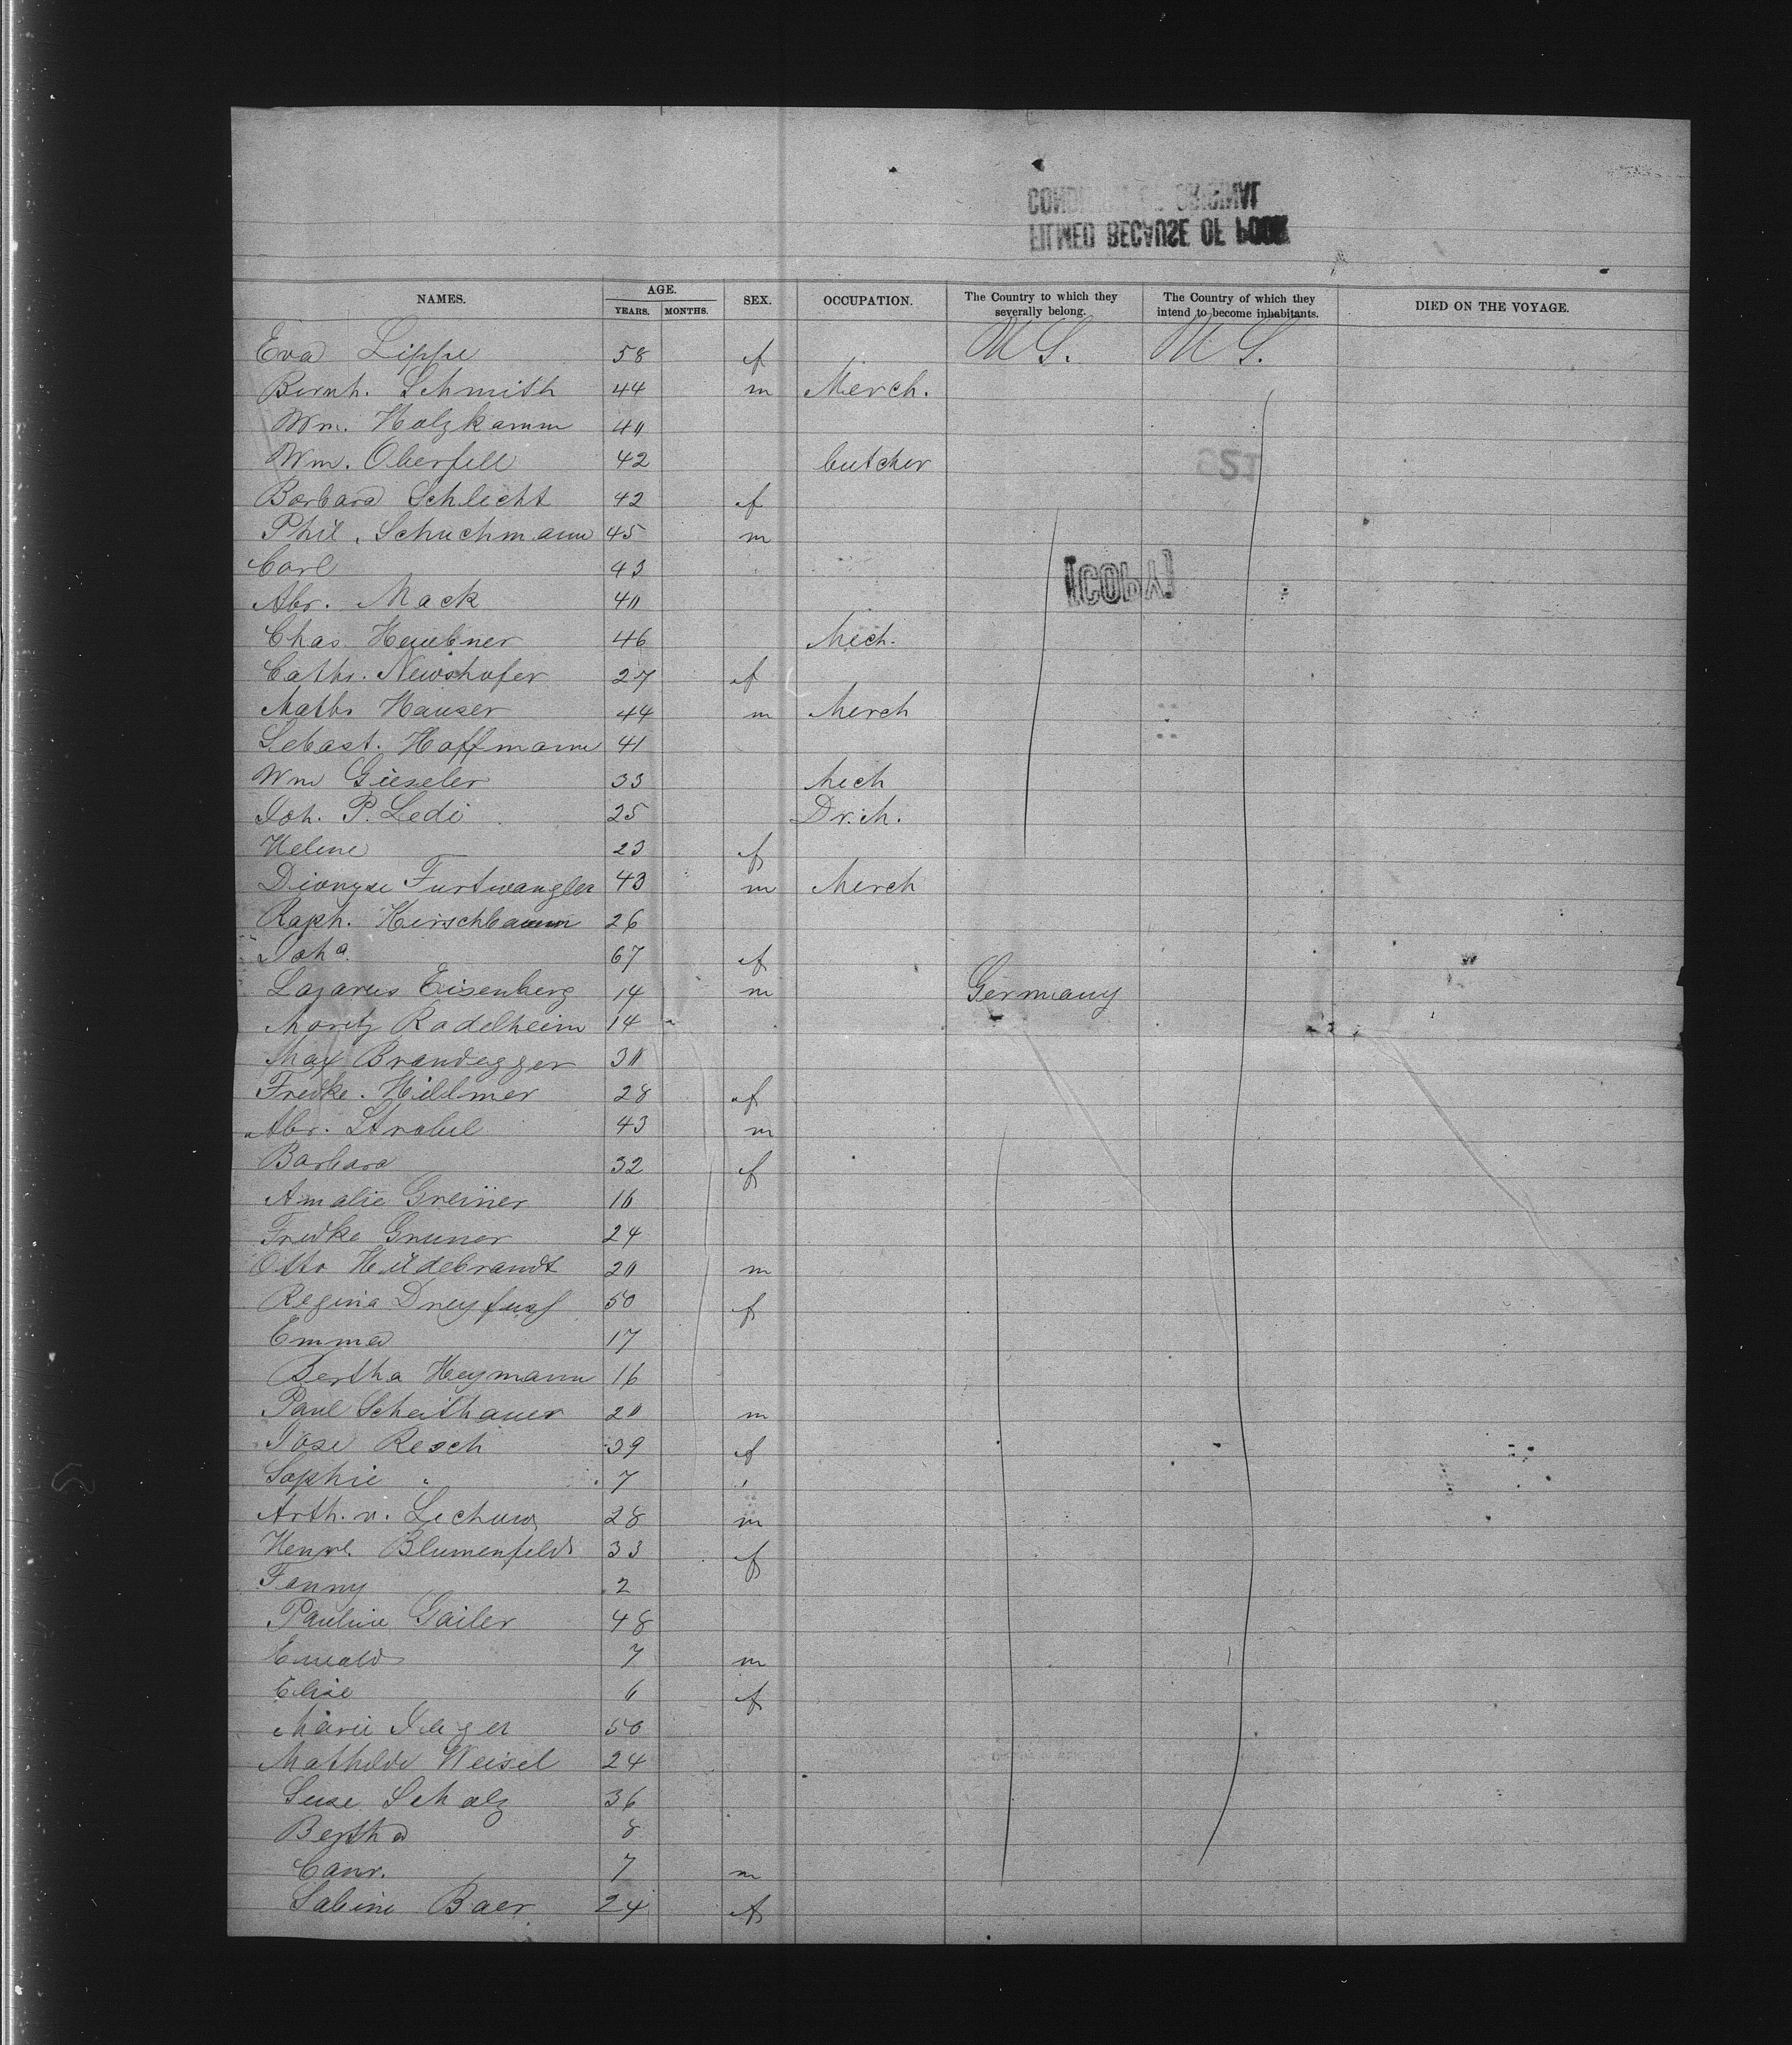 CONDITION OF ORIGINAL
FILMED BECAUSE OF POOR
NAMES. AGE. YEARS. MONTHS. SEX. OCCUPATION. The Country to which they severally belong. The Country of which they intend to become inhabitants. DIED ON THE VOYAGE.
Eva Lippe 58 f U S. U S.
Bernh. Schmith 44 m Merch.
Wm. Holzkamm 40
Wm. Oberfell 42 butcher
Barbara Schlecht 42 f
Phil. Schuchmann 45 m
Carl 43
[COPY]
Abr. Mack 40
Chas Heubner 46 Mech.
Cathr. Newshofer 27 f
Maths Hauser 44 m Merch
Sebast. Hoffmann 41
Wm Gieseler 33 Mech
Joh. P. Ledi 25 Dr.ch.
Helene 23 f
Dionyse Furtwangler 43 m Merch
Raph. Hirschbaum 26
Joha. 67 f
Lazarus Eisenberg 14 m Germany
Moritz Radelheim 14
Max Brandegger 30
Fredke. Hillmer 28 f
Abr. Strobel 43 m
Barbara 32 f
Amalie Greiner 16
Fredke Gruner 24
Otto Hildebrandt 20 m
Regina Dreyfuss 50 f
Emma 17
Bertha Heymann 16
Paul Scheithauer 20 m
Jose Resch 39 f
Sophie " 7
Arth. v. 28 m
Henre. Blumenfeld 33 f
Fanny 2
Pauline Gailer 48
Ewald 7 m
Elise 6 f
Marie Jager 50
Mathilde Weisel 24
Suse Scholz 36
Bertha 8
Conr. 7 m
Sabine Baer 24 f